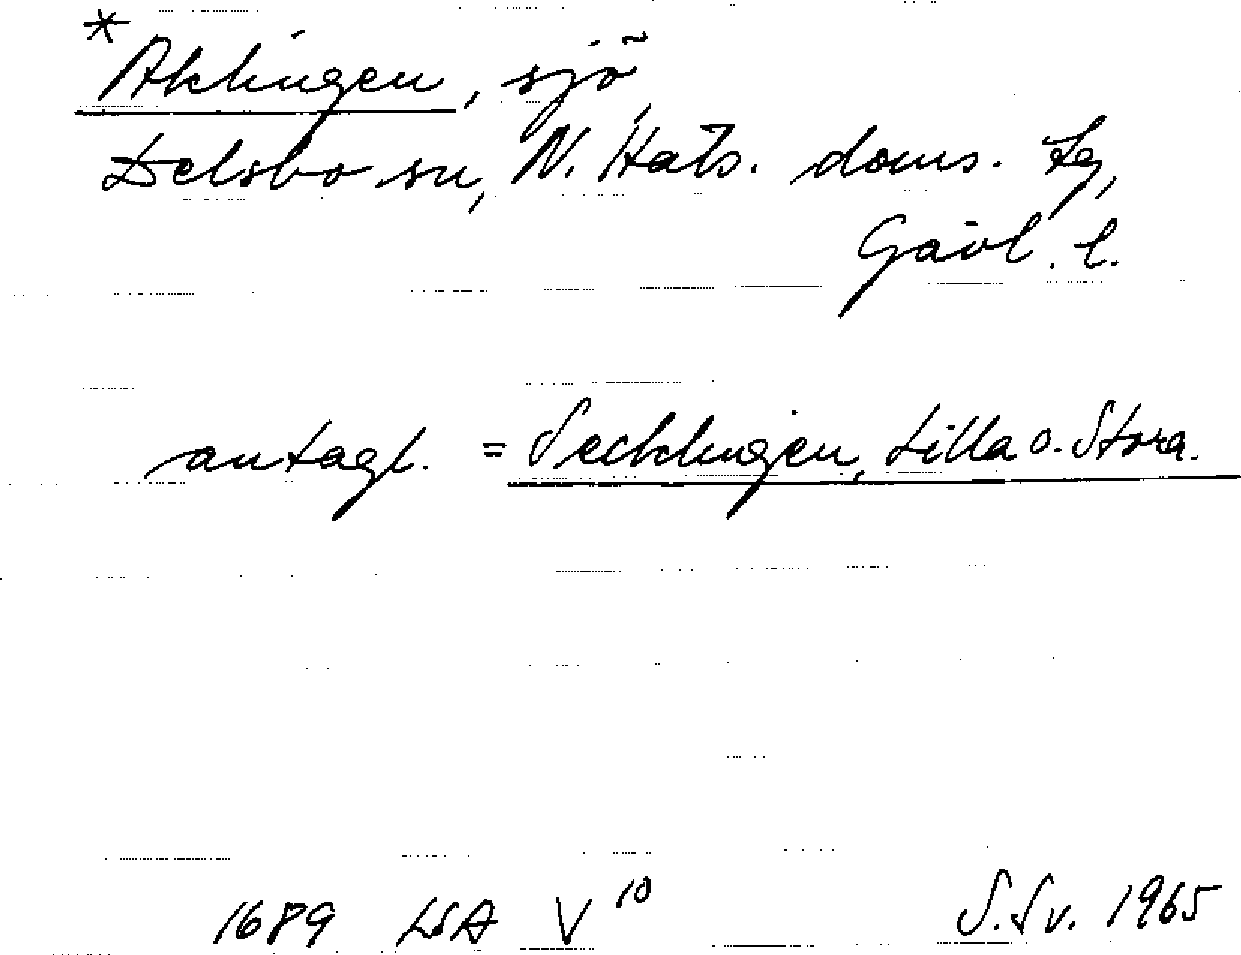 *
Aklingen, sjö,
Delsbo sn, N. Häls. doms. tg,
Gävl. l.
antagl. = Pecklingen, Lilla o. Stora.
1689 LSA V 10 S. Sv. 1965